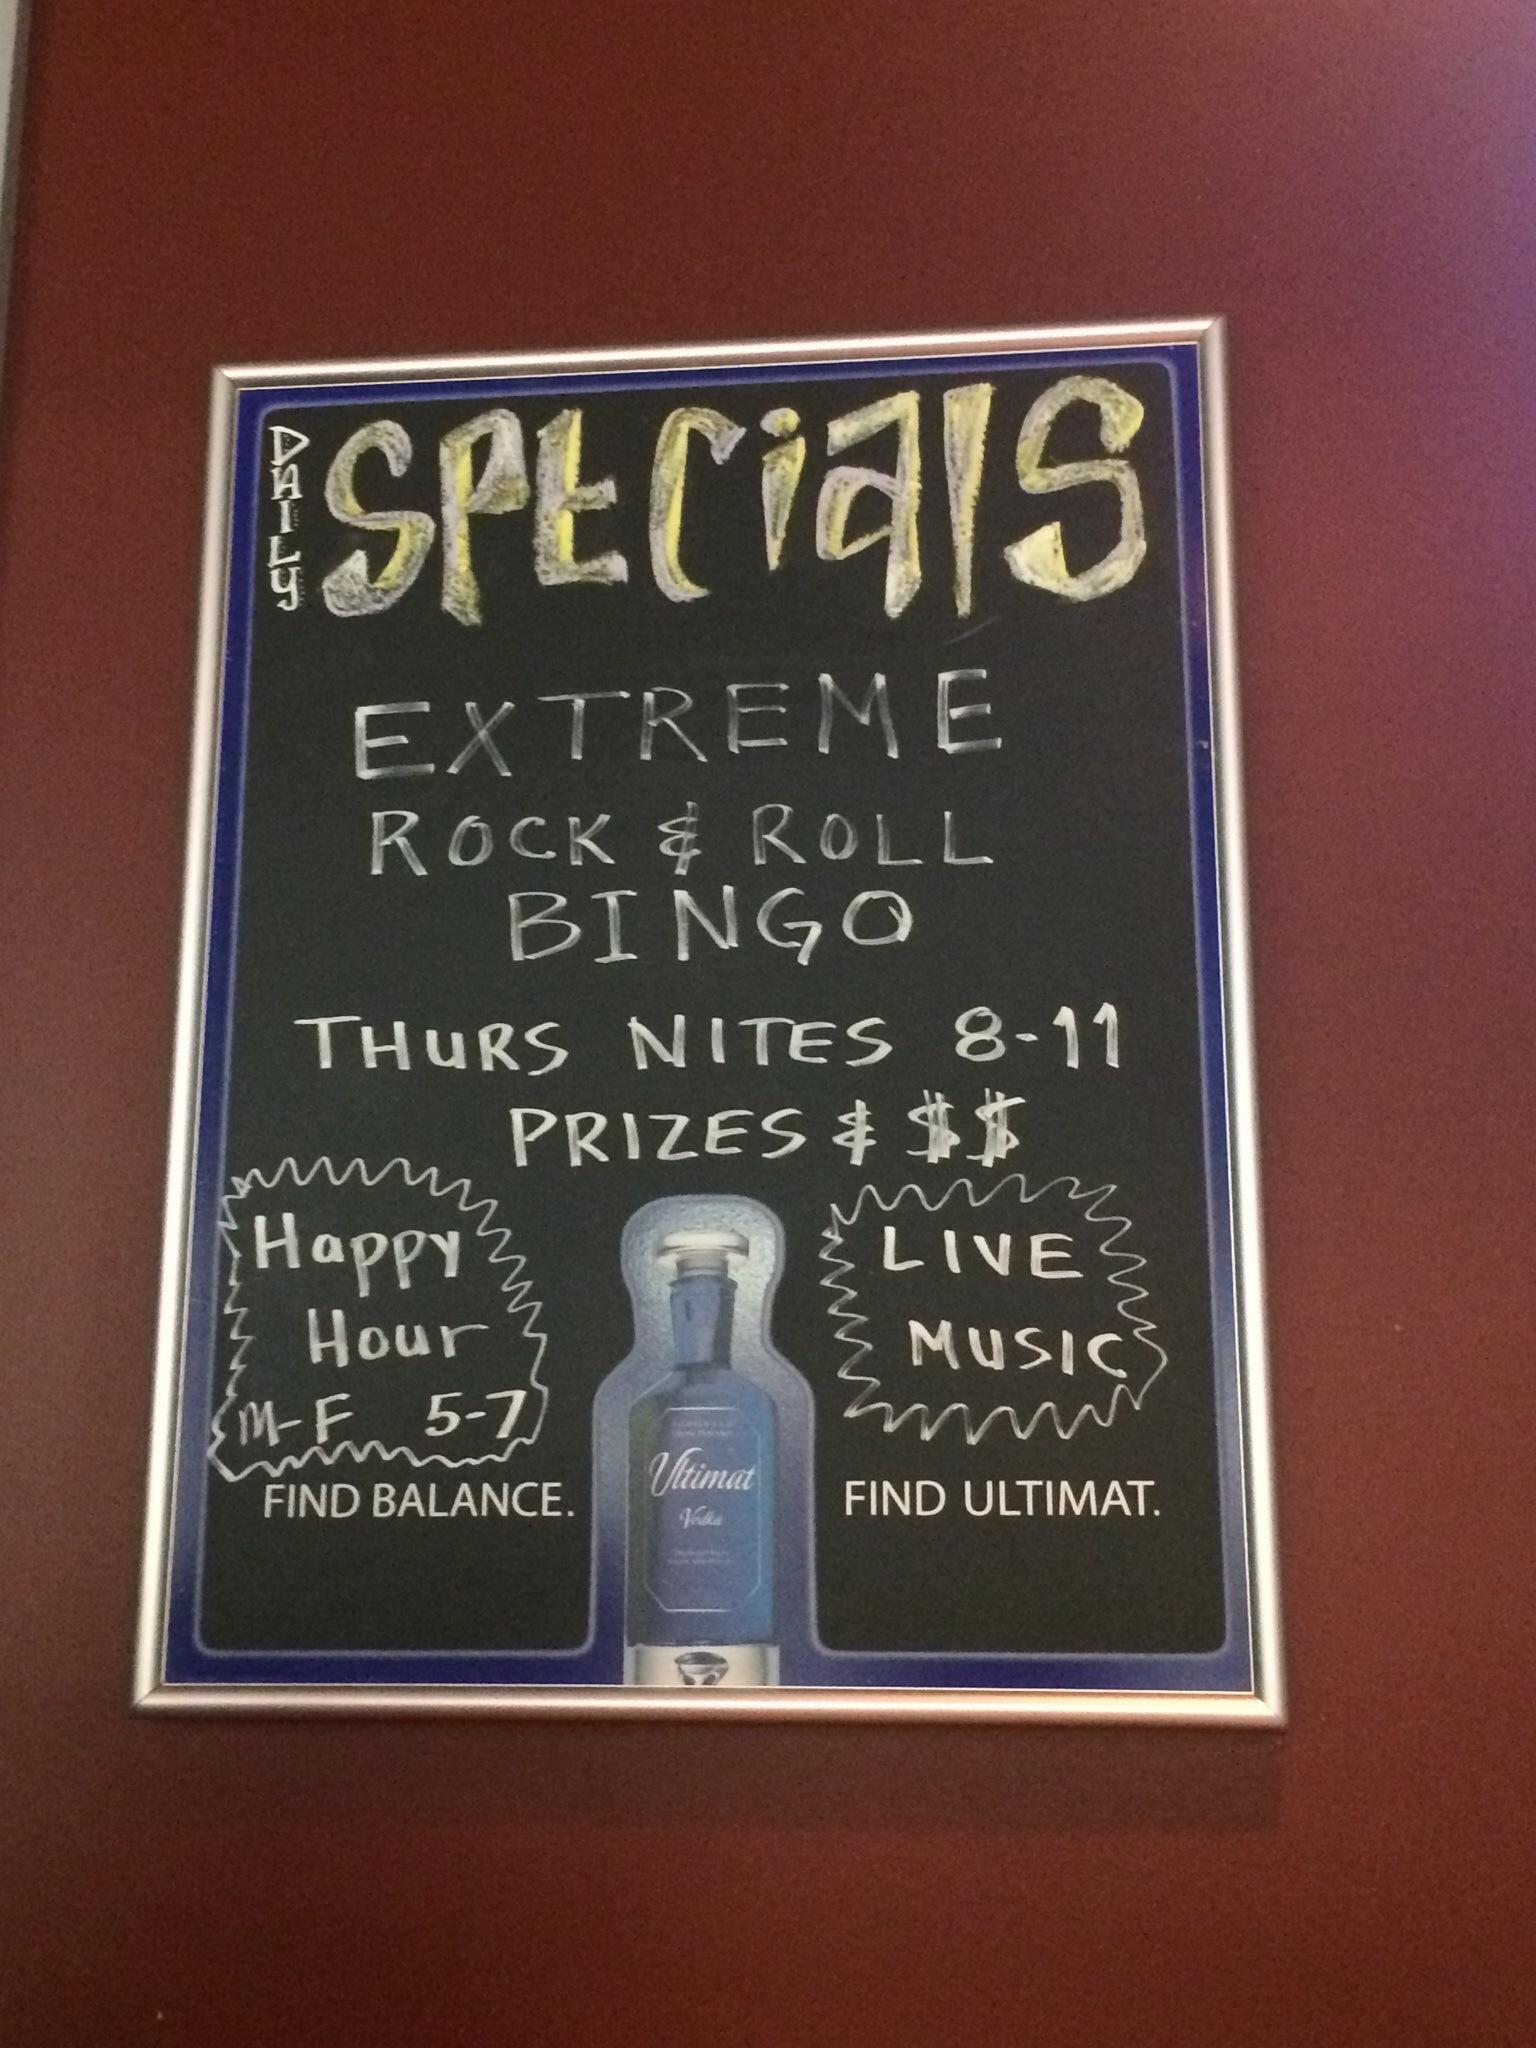 DAILY SPECIALS
EXTREME
ROCK & ROLL
BINGO
THURS NITES 8-11
PRIZES & $$
Happy
Hour
M-F 5-7
LIVE
MUSIC
FIND BALANCE.
Ultimat
Vodka
FIND ULTIMAT.